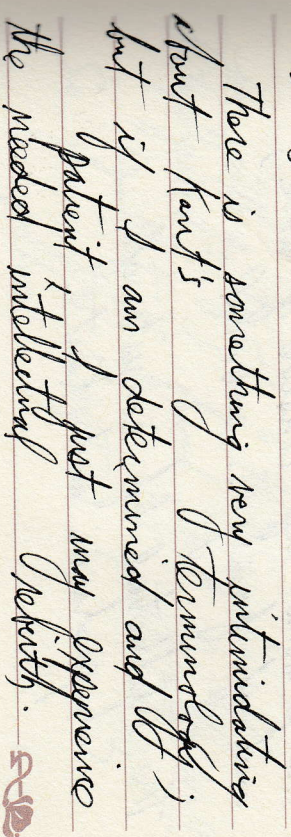 There is something very intimidating
about Kant's terminology;
but if I am determined and
patient I just may experience
the needed intellectual rebirth.